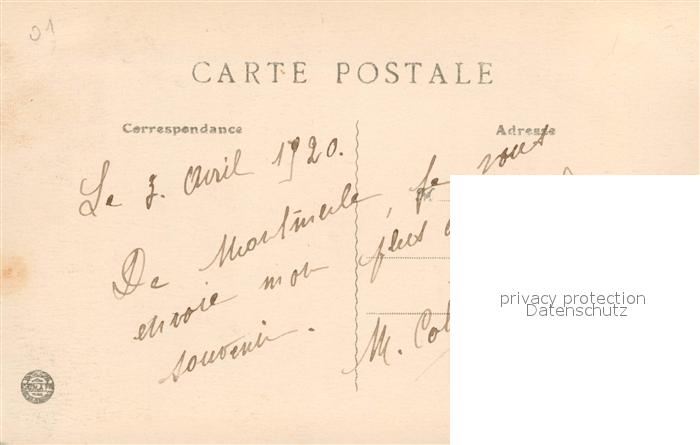 01
CARTE POSTALE
Correspondance
Adresse
Le 3. Avril 1920.
De Montmerle, je vous
envoie mon plus
souvenir.
M. Col
privacy protection
Datenschutz